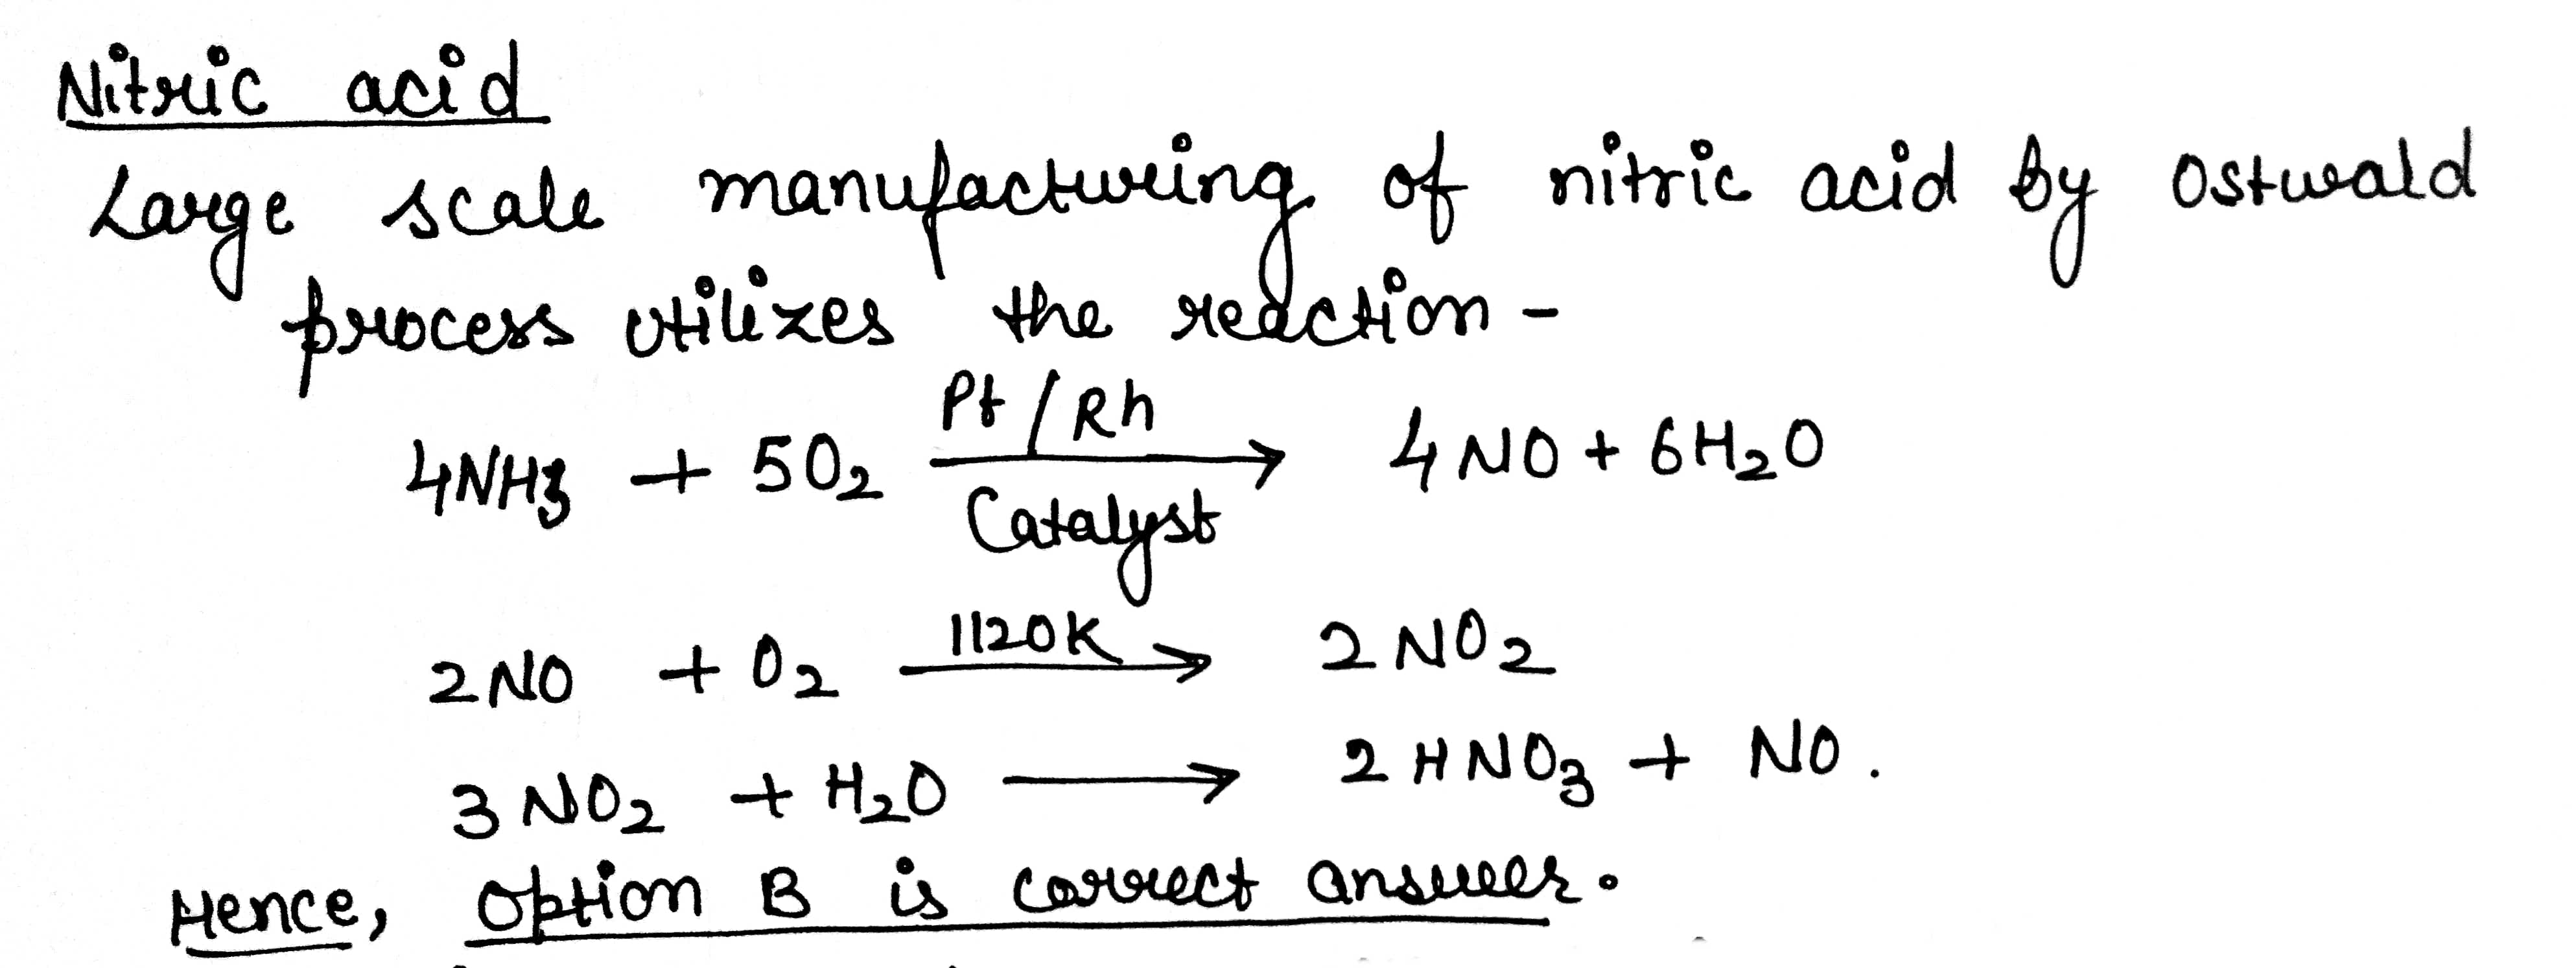 Nitric acid
Large scale manufacturing of nitric acid by Ostwald
process utilizes the reaction -
4NH3 + 5O2 Pt/Rh Catalyst → 4NO + 6H2O
2NO + O2 1120K → 2NO2
3NO2 + H2O → 2HNO3 + NO.
Hence, Option B is correct answer.